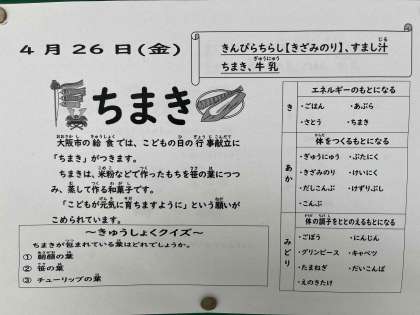 4月26日(金)
きんぴらちらし【きざみのり】、すまし汁
ちまき、牛乳
ちまき
大阪市の給食では、こどもの日の行事献立に
「ちまき」がつきます。
ちまきは、米粉などで作ったもちを笹の葉につつ
み、蒸して作る和菓子です。
「こどもが元気に育ちますように」という願いが
こめられています。
～きゅうしょくクイズ～
ちまきが包まれている葉はどれでしょうか。
① 朝顔の葉
② 笹の葉
③ チューリップの葉
き
エネルギーのもとになる
・ごはん ・あぶら
・さとう ・ちまき
あか
体をつくるもとになる
・ぎゅうにゅう ・ぶたにく
・きざみのり ・けいにく
・だしこんぶ ・けずりぶし
・こんぶ
みどり
体の調子をととのえるもとになる
・ごぼう ・にんじん
・グリンピース ・キャベツ
・たまねぎ ・だいこんば
・えのきたけ